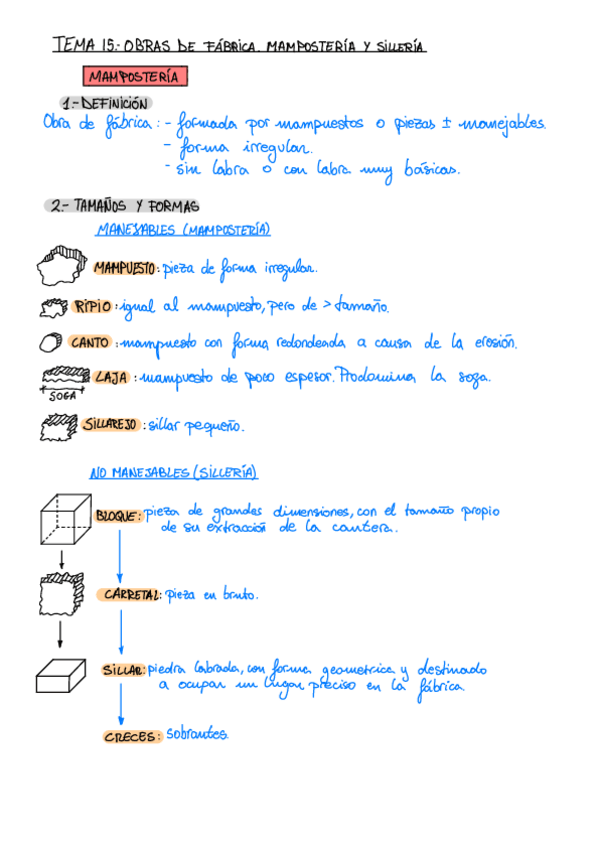 TEMA 15.- OBRAS DE FÁBRICA. MAMPOSTERÍA Y SILLERÍA
MAMPOSTERÍA
1.- DEFINICIÓN
Obra de fábrica: - formada por mampuestos o piezas ± manejables.
- forma irregular.
- sin labra o con labra muy básicas.
2.- TAMAÑOS Y FORMAS
MANEJABLES (MAMPOSTERÍA)
MAMPUESTO: pieza de forma irregular.
RIPIO: igual al mampuesto, pero de > tamaño.
CANTO: mampuesto con forma redondeada a causa de la erosión.
LAJA: mampuesto de poco espesor. Predomina la soga.
SOGA
SILLAREJO: sillar pequeño.
NO MANEJABLES (SILLERÍA)
BLOQUE: pieza de grandes dimensiones, con el tamaño propio
de su extracción de la cantera.
CARRETAL: pieza en bruto.
SILLAR: piedra labrada, con forma geometrica y destinado
a ocupar un lugar preciso en la fábrica
CRECES: sobrantes.